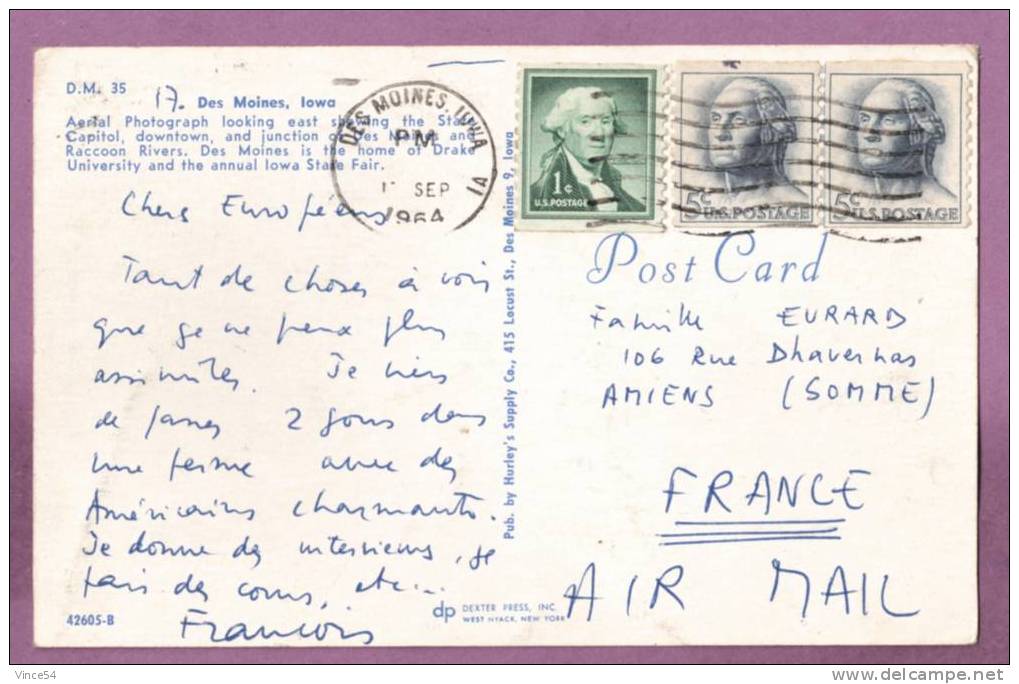 D.M. 35
17. Des Moines, Iowa
Aerial Photograph looking east showing the State
Capitol, downtown, and junction of Des Moines and
Raccoon Rivers. Des Moines is the home of Drake
University and the annual Iowa State Fair.
DES MOINES, IOWA
PM
SEP
1964
IA
1¢
U.S. POSTAGE
5¢ U.S. POSTAGE
5¢ U.S. POSTAGE
Chers Européens
Tant de choses à voir
que je ne peux plus
assimiler. Je viens
de passer 2 jours dans
une ferme avec des
Américains charmants.
Je donne des interviews, je
fais des cours, etc...
Francois
42605-B
Pub. by Hurley's Supply Co., 415 Locust St., Des Moines 9, Iowa
Post Card
Famille EVRARD
106 Rue Dhavernas
AMIENS (SOMME)
FRANCE
AIR MAIL
dp DEXTER PRESS, INC.
WEST NYACK, NEW YORK
Vince54
delcampe.net